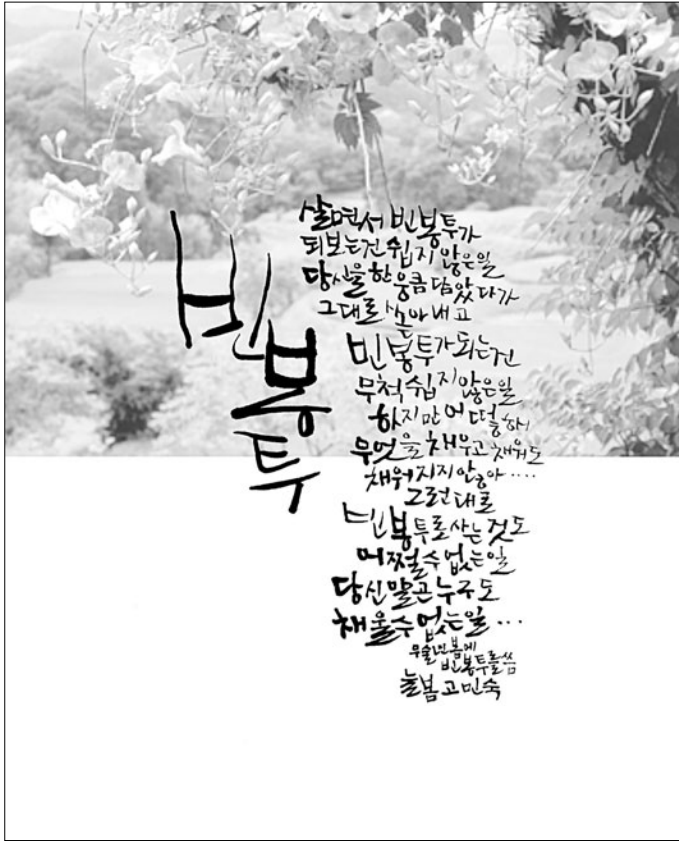 빈
봉
투
살면서 빈봉투가
되보는건 쉽지 않은일
당신을 한움큼 담았다가
그대로 쏟아내고
빈봉투가 되는건
무척 쉽지않은일
하지만 어떻해
무엇을 채우고 채워도
채워지지 않아 ....
그런대로
빈봉투로 사는 것도
어쩔수 없는일
당신말곤 누구도
채울수 없는일 ...
무술년봄에
빈봉투를씀
늘봄 고민숙